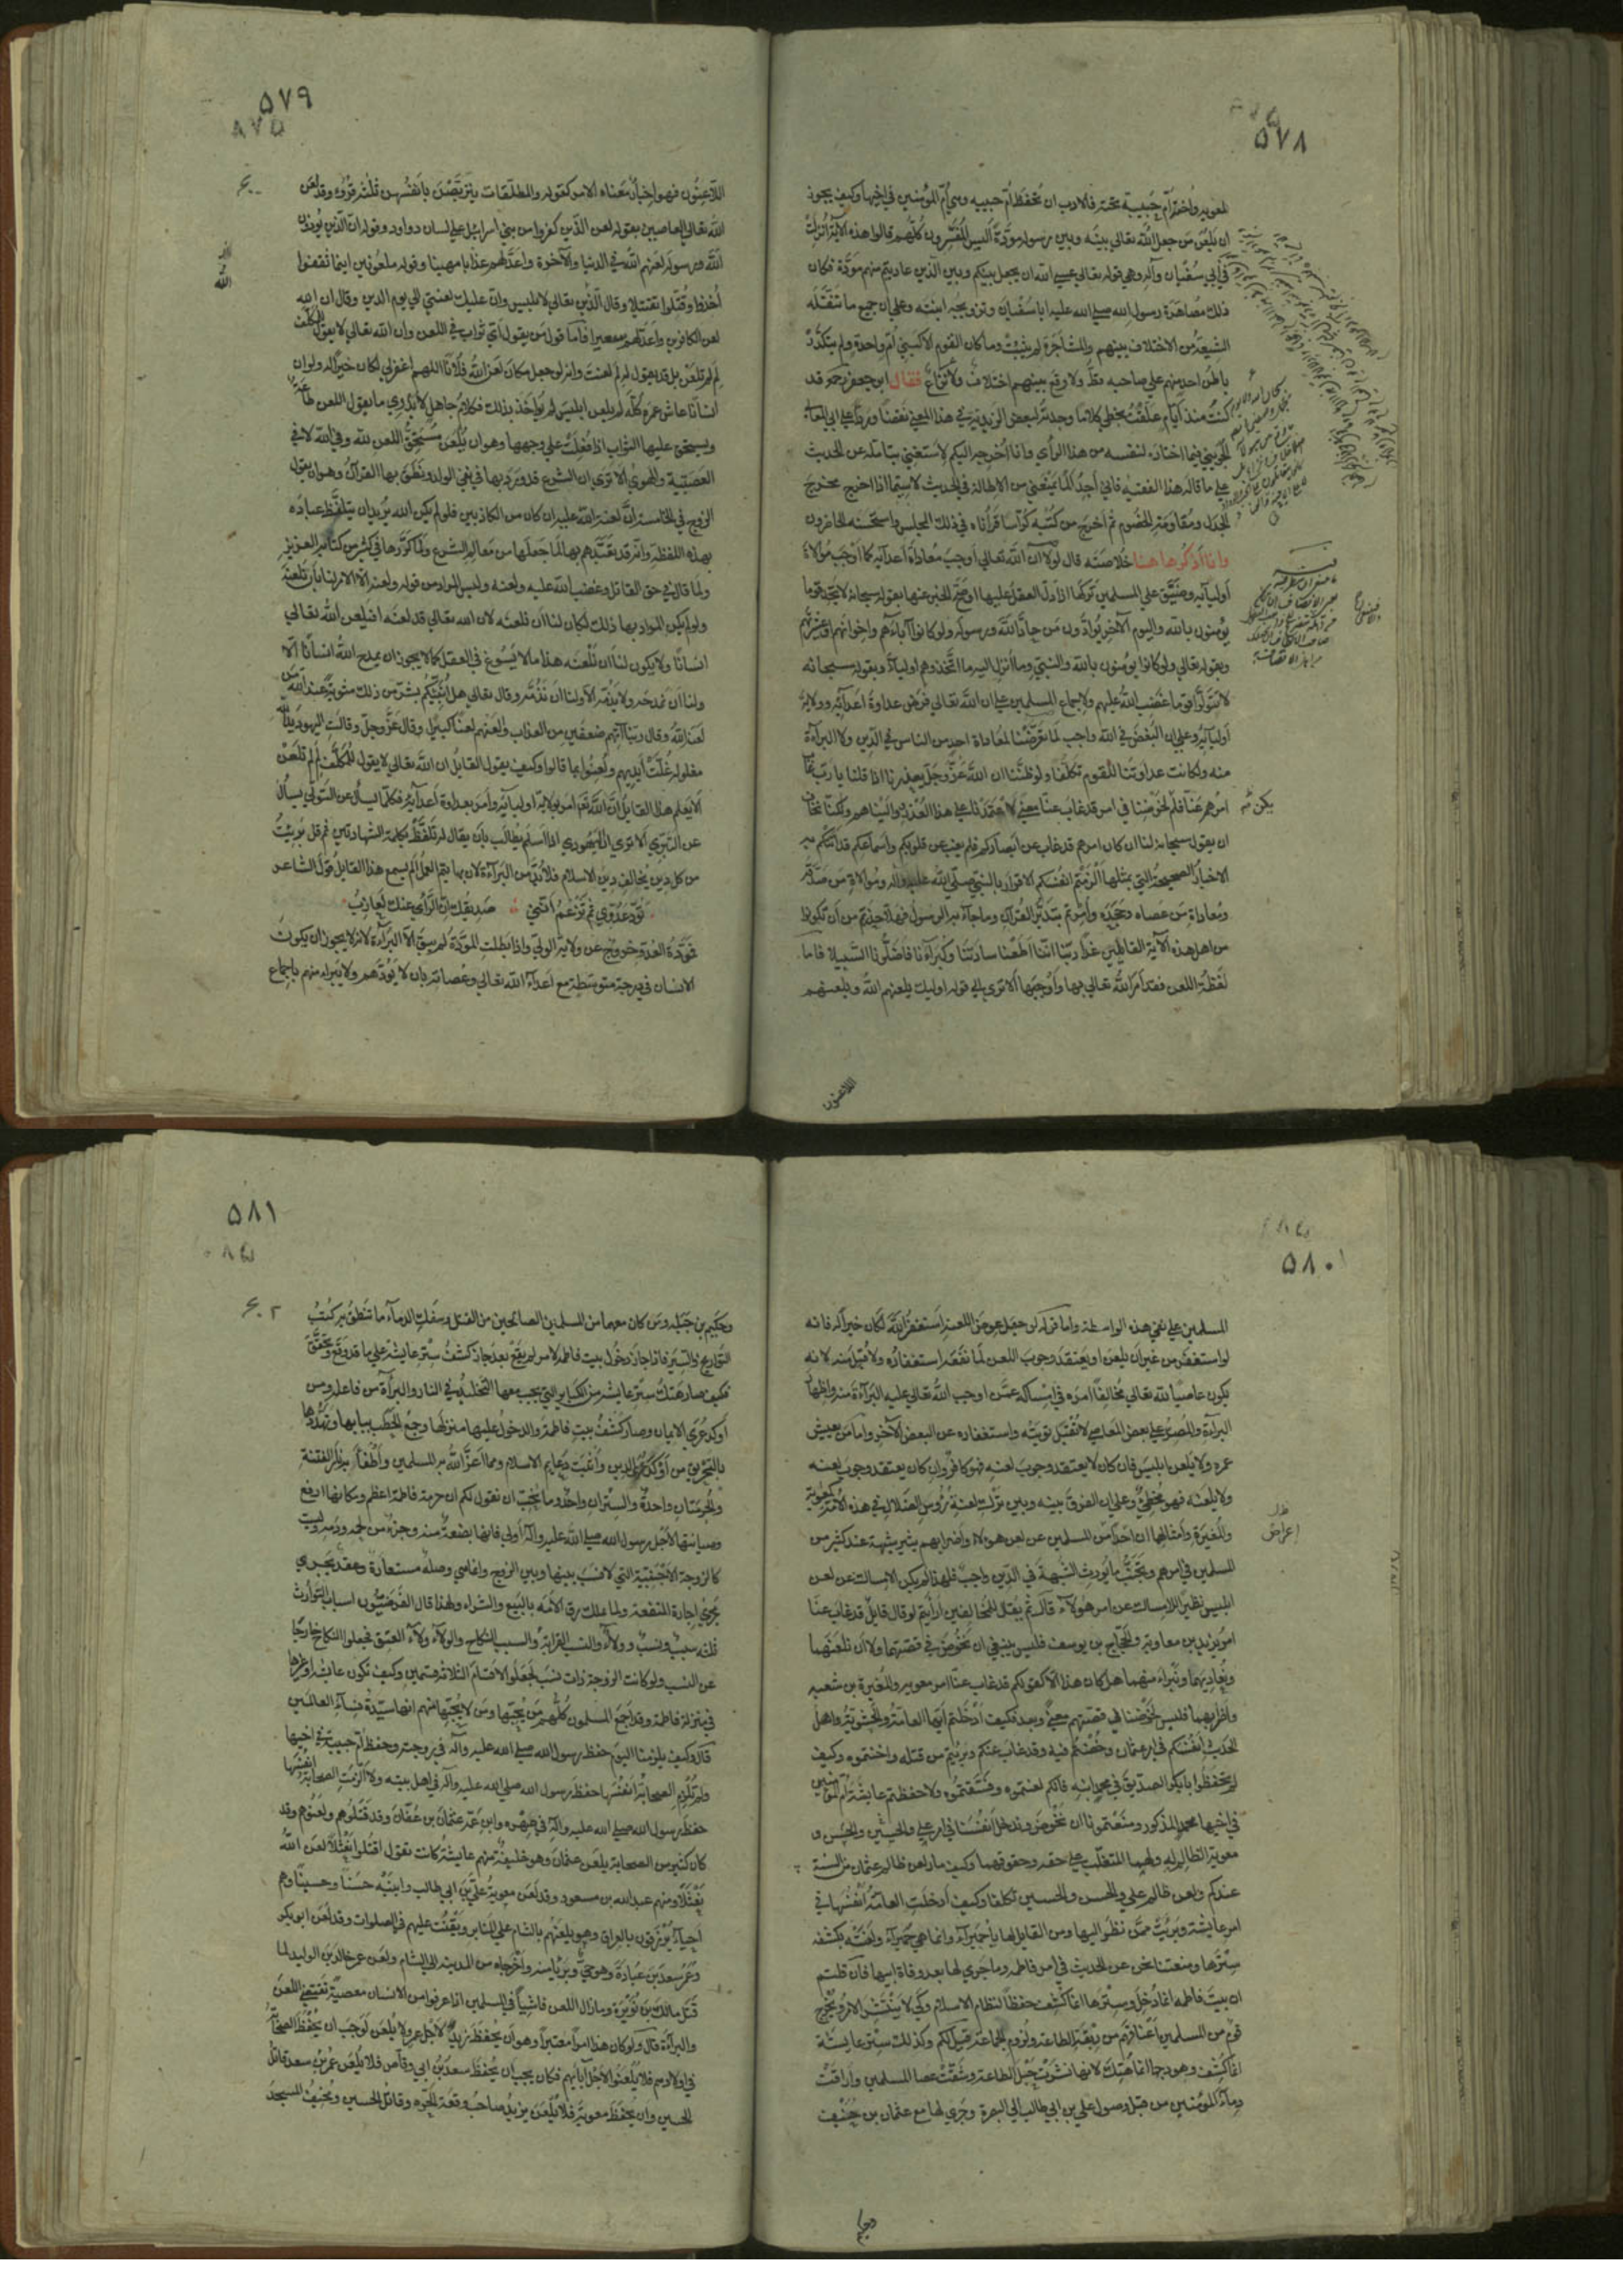 ۵۷۸
لمعويه واخته أم حبيبة تحته فالادب ان تُحفظ أم حبيبه وهي أم المؤمنين في اخيها وكيف يجوز
ان يلعن من جعل الله تعالى بينه وبين رسوله مودّة أليس المفسرون كلهم قالوا هذه الآية أنزلت
في أبي سفيان وآله وهي قوله تعالى عسى الله ان يجعل بينكم وبين الذين عاديتم منهم مودّة فكان
ذلك مصاهرة رسول الله صلى الله عليه ابا سفيان وتزويجه ابنته وعلى ان جميع ما تنقله
الشيعة من الاختلاف بينهم والمشاجرة لم يثبت وما كان القوم الا كبني أم واحدة ولم يتكدّر
باطن احد منهم على صاحبه قط ولا وقع بينهم اختلاف ولا نزاع فقال ابو جعفر رحمه قد
كنت منذ أيام علقت بخطي كلاما وجدته لبعض الزيدية في هذا المعنى نقضا وردّا على ابي المعالي
الجويني فيما اختاره لنفسه من هذا الرأي وانا أخرجه اليكم لاستغني بتأمله عن الحديث
على ما قاله هذا الفقيه فاني أجد ألما يمنعني من الاطالة في الحديث لا سيما اذا خرج مخرج
الجدل ومقاومة الخصوم ثم أخرج من كتبه كراسا قرأناه في ذلك المجلس واستحسنه الحاضرون
وانا أذكر ها هنا خلاصته قال لولا ان الله تعالى أوجب معاداة أعدائه كما أوجب موالاة
أوليائه وضيّق على المسلمين تركها اذا دل العقل عليها او صح الخبر عنها بقوله سبحانه لا تجد قوما
يؤمنون بالله واليوم الآخر يوادّون من حادّ الله ورسوله ولو كانوا آباءهم واخوانهم او عشيرتهم
وبقوله تعالى ولو كانوا يؤمنون بالله والنبي وما أنزل اليه ما اتخذوهم اولياء وبقوله سبحانه
لا تتولوا قوما غضب الله عليهم ولاجماع المسلمين على ان الله تعالى فرض عداوة أعدائه وولاية
أوليائه وعلى ان البغض في الله واجب لما تعرضنا لمعاداة احد من الناس في الدين ولا البراءة
منه ولكانت عداوتنا للقوم تكلفا ولو ظننا ان الله عز وجل يعذرنا اذا قلنا يا رب غاب
امرهم عنا فلم يكن لخوضنا في امر قد غاب عنا معنى لاعتمدنا على هذا العذر وواليناهم ولكنا نخاف
ان يقول سبحانه لنا ان كان امرهم قد غاب عن أبصاركم فلم يغب عن قلوبكم وأسماعكم قد أتتكم به
الاخبار الصحيحة التي بمثلها ألزمتم انفسكم الاقرار بالنبي صلى الله عليه وآله وموالاة من صدّقه
ومعاداة من عصاه وجحده وأمرتم بتدبر القرآن وما جاء به الرسول فهلا حذرتم من أن تكونوا
من اهل هذه الآية القائلين غدا ربنا اننا اطعنا سادتنا وكبراءنا فاضلونا السبيلا فاما
لفظة اللعن فقد أمر الله تعالى بها وأوجبها ألا ترى الى قوله اوليك يلعنهم الله ويلعنهم
اللاعنون
۵۷۹
اللاعنون فهو إخبار معناه الامر كقوله والمطلقات يتربصن بانفسهن ثلثة قروء وقد لعن
الله تعالى العاصين بقوله لعن الذين كفروا من بني اسرائيل على لسان داود وقوله ان الذين يؤذون
الله ورسوله لعنهم الله في الدنيا والآخرة واعدّ لهم عذابا مهينا وقوله ملعونين اينما ثقفوا
أخذوا وقتلوا تقتيلا وقال الله تعالى لابليس وان عليك لعنتي الى يوم الدين وقال ان الله
لعن الكافرين واعدّ لهم سعيرا فاما قول من يقول أي ثواب في اللعن وان الله تعالى لا يقول للمكلف
لِمَ لم تلعن بل قد يقول له لم لعنت وانه لو جعل مكان لعن الله فلانا اللهم اغفر لي لكان خيرا له ولو ان
انسانا عاش عمره كله لم يلعن ابليس لم يؤاخذ بذلك فكلام جاهل لا يدري ما يقول اللعن طاعة
ويستحق عليها الثواب اذا فعلت على وجهها وهو ان يلعن مستحق اللعن لله وفي الله لا في
العصبية والهوى ألا ترى ان الشرع قد ورد بها في نفي الولد ونطق بها القرآن وهو ان يقول
الزوج في الخامسة ان لعنة الله عليه ان كان من الكاذبين فلو لم يكن الله يريد ان يتلفظ عباده
بهذه اللفظة وانه قد تعبّدهم بها لما جعلها من معالم الشرع ولما كرّرها في كثير من كتابه العزيز
ولما قال في حق القاتل وغضب الله عليه ولعنه وليس المراد من قوله ولعنه الا الامر لنا بأن نلعنه
ولو لم يكن المراد بها ذلك لكان لنا ان نلعنه لان الله تعالى قد لعنه افيلعن الله تعالى
انسانا ولا يكون لنا ان نلعنه هذا ما لا يسوغ في العقل كما لا يجوز ان يمدح الله انسانا الا
ولنا ان نمدحه ولا يذمّه الا ولنا ان نذمّه وقال تعالى هل أنبئكم بشر من ذلك مثوبة عند الله من
لعنه الله وقال ربنا آتهم ضعفين من العذاب والعنهم لعنا كبيرا وقال عز وجل وقالت اليهود يد الله
مغلولة غلت أيديهم ولعنوا بما قالوا وكيف يقول القايل ان الله تعالى لا يقول للمكلف لِمَ لم تلعن
ألا يعلم هذا القايل ان الله تعالى امر بولاية اوليائه وأمر بعداوة أعدائه فكما يسأل عن التولي يسأل
عن التبري ألا ترى ان اليهودي اذا أسلم يطالب بأن يقال له تلفظ بكلمة الشهادتين ثم قل برئت
من كل دين يخالف دين الاسلام فلا بد من البراءة لان بها يتم العمل ألم يسمع هذا القايل قول الشاعر
تود عدوي ثم تزعم أنني صديقك ان الرأي عنك لعازب
فمودة العدو خروج عن ولاية الولي واذا بطلت المودة لم يبق الا البراءة لانه لا يجوز ان يكون
الانسان في درجة متوسطة مع أعداء الله تعالى وعصاته بان لا يودهم ولا يبرأ منهم باجماع
۵۸۰
المسلمين على نفي هذه الواسطة واما قوله لو جعل عوض اللعنة استغفر الله لكان خيرا له فانه
لو استغفر من غير ان يلعن او يعتقد وجوب اللعن لما نفعه استغفاره ولا قبل منه لانه
يكون عاصيا لله تعالى مخالفا امره في امساكه عمن اوجب الله تعالى عليه البراءة منه واظهار
البراءة والمصر على بعض المعاصي لا تقبل توبته واستغفاره عن البعض الآخر واما من يعيش
عمره ولا يلعن ابليس فان كان لا يعتقد وجوب لعنه فهو كافر وان كان يعتقد وجوب لعنه
ولا يلعنه فهو مخطئ وعلى ان الفرق بينه وبين ترك لعنة رؤوس الضلال في هذه الامة كمعوية
والمغيرة وامثالهما ان احدا من المسلمين عن لعن هولاء واضرابهم يثير شبهة عند كثير من
المسلمين في امرهم وتجنب ما يورث الشبهة في الدين واجب فلهذا لم يكن الامساك عن لعن
ابليس نظير الامساك عن امر هؤلاء قال ثم يقال للمخالفين ارأيتم لو قال قايل قد غاب عنا
امر يزيد بن معاوية والحجاج بن يوسف فليس ينبغي ان نخوض في قصتهما ولا ان نلعنهما
ونعاديهما ونبراء منهما هل كان هذا الا كقولكم قد غاب عنا امر معويه والمغيرة بن شعبه
واضرابهما فليس لخوضنا في قصتهم معنى وبعد فكيف أدخلتم أيها العامة والحشوية واهل
الحديث أنفسكم في امر عثمان وخضتم فيه وقد غاب عنكم وبرئتم من قتلته ولعنتموه وكيف
لم تحفظوا ابا بكر الصديق في محمد ابنه فانكم لعنتموه وفسقتموه ولا حفظتم عايشة أم المؤمنين
في اخيها محمد المذكور ومنعتمونا ان نخوض وندخل أنفسنا في امر علي والحسن والحسين و
معوية الظالم له ولهما المتغلب على حقه وحقوقهما وكيف صار لعن ظالم عثمان من السنة
عندكم ولعن ظالم علي والحسن والحسين تكلفا وكيف أدخلت العامة أنفسها في
امر عايشة وبرئت ممن نظر اليها ومن القايل لها يا حميراء وانما هي حميراء ولعنته بكشفه
سترها ومنعتنا نحن عن الحديث في أمر فاطمه وما جرى لها بعد وفاة ابيها فان قلتم
ان بيت فاطمه انما دخل وسترها انما كشف حفظا لنظام الاسلام وكي لا ينتشر الامر ويخرج
قوم من المسلمين أعناقهم من ربقة الطاعة ولزوم الجماعة قيل لكم وكذلك ستر عايشة
انما كشف وهودجها انما هتك لانها نشرت حبل الطاعة وشقت عصا المسلمين وأراقت
دماء المؤمنين من قبل وصول علي بن ابي طالب الى البصرة وجرى لها مع عثمان بن حنيف
وحكيم
۵۸۱
وحكيم بن جبلة ومن كان معهما من المسلمين الصالحين من القتل وسفك الدماء ما تنطق به كتب
التواريخ والسير فاذا جاز دخول بيت فاطمه لامر لم يقع بعد جاز كشف ستر عايشة على ما قد وقع وتحقق
فكيف صار هتك ستر عايشه من الكباير التي يجب معها التخليد في النار والبراءة من فاعله ومن
أوكد عرى الايمان وصار كشف بيت فاطمة والدخول عليها منزلها وجمع الحطب ببابها وتهددها
بالتحريق من أوكد عرى الدين وأثبت دعايم الاسلام ومما اعز الله به المسلمين وأطفأ به نار الفتنة
والحرمتان واحدة والستران واحد وما نحب ان نقول لكم ان حرمة فاطمة اعظم ومكانها ارفع
وصيانتها لاجل رسول الله صلى الله عليه وآله أولى فانها بضعة منه وجزء من لحمه ودمه وليست
كالزوجة الأجنبية التي لا نسب بينها وبين الزوج وانما هي وصلة مستعارة وعقد يجري
مجرى اجارة المنفعة وكما يملك رق الأمة بالبيع والشراء ولهذا قال الفرضيون اسباب التوارث
ثلثه سبب ونسب وولاء والنسب القرابة والسبب النكاح والولاء ولاء العتق فجعلوا النكاح خارجا
عن النسب ولو كانت الزوجة ذات نسب لجعلوا الاقسام الثلاثة قسمين وكيف تكون عايشه او غيرها
في منزلة فاطمة وقد اجمع المسلمون كلهم من يحبها ومن لا يحبها منهم انها سيدة نساء العالمين
قال وكيف يلزمنا اليوم حفظ رسول الله صلى الله عليه وآله في زوجته وحفظ أم حبيبة في اخيها
ولم تلزم الصحابة أنفسها حفظ رسول الله صلى الله عليه وآله في اهل بيته ولا ألزمت الصحابة انفسها
حفظ رسول الله صلى الله عليه وآله في صهره وابن عمه عثمان بن عفان وقد قتلوهم ولعنوهم وقد
كان كثير من الصحابة يلعن عثمان وهو خليفة منهم عايشة كانت تقول اقتلوا نعثلا لعن الله
نعثلا ومنهم عبد الله بن مسعود وقد لعن معوية علي بن ابي طالب وابنيه حسنا وحسينا وهم
احياء يرزقون بالعراق وهو يلعنهم بالشام على المنابر ويقنت عليهم في الصلوات وقد لعن ابو بكر
وعمر سعد بن عبادة وهو حي وبرئا منه وأخرجاه من المدينه الى الشام ولعن عمر خالد بن الوليد لما
قتل مالك بن نويرة وما زال اللعن فاشيا في المسلمين اذا عرفوا من الانسان معصية تقتضي اللعن
والبراءة قال ولو كان هذا امرا معتبرا وهو ان يحفظ زيد لاجل عمرو فلا يلعن لوجب ان تحفظ الصحابة
في اولادهم فلا يلعنوا لاجل آبائهم فكان يجب ان يحفظ سعد بن ابي وقاص فلا يلعن عمر بن سعد قاتل
الحسين وان يحفظ معوية فلا يلعن يزيد صاحب وقعة الحره وقاتل الحسين ومخيف المسجد